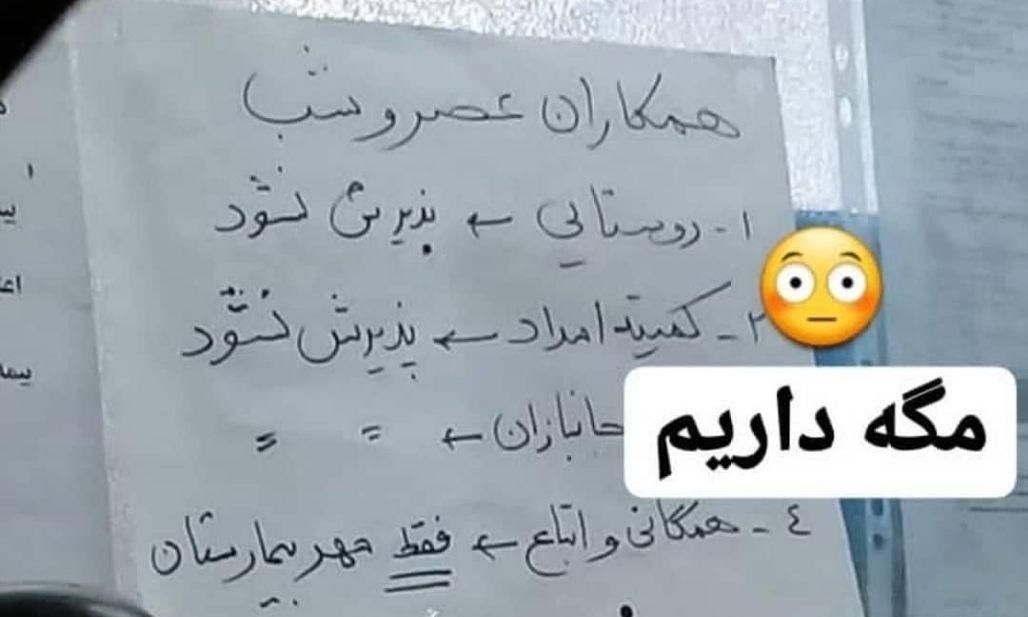 همکاران عصر و شب
۱- روستایی ← پذیرش نشود
۲- کمیته امداد ← پذیرش نشود
جانبازان ← = =
مگه داریم
٤- همگانی و اتباع ← فقط مهر بیمارستان